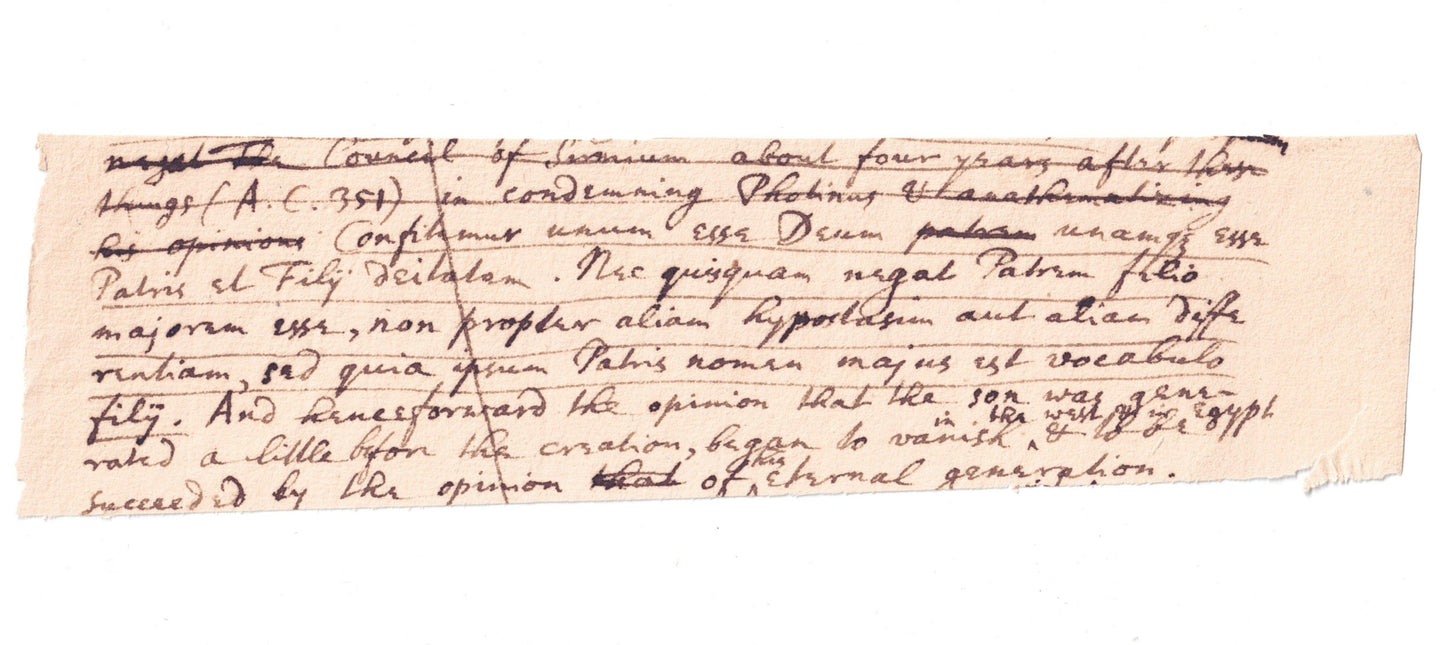 negat The Council of Sirmium about four years after these
things (A.C. 351) in condemning Photinus & anathematizing
his opinions Confitemur unum esse Deum patrem unamqꝫ esse
Patris et Filij deitatem. Nec quisquam negat Patrem filio
majorem esse, non propter aliam hypostasim aut aliam diffe
rentiam, sed quia ipsum Patris nomen majus est vocabulo
filij. And henceforward the opinion that the son was gene-
in the west & in Egypt
rated a little before the creation, began to vanish & to be
his
succeeded by the opinion that of eternal generation.